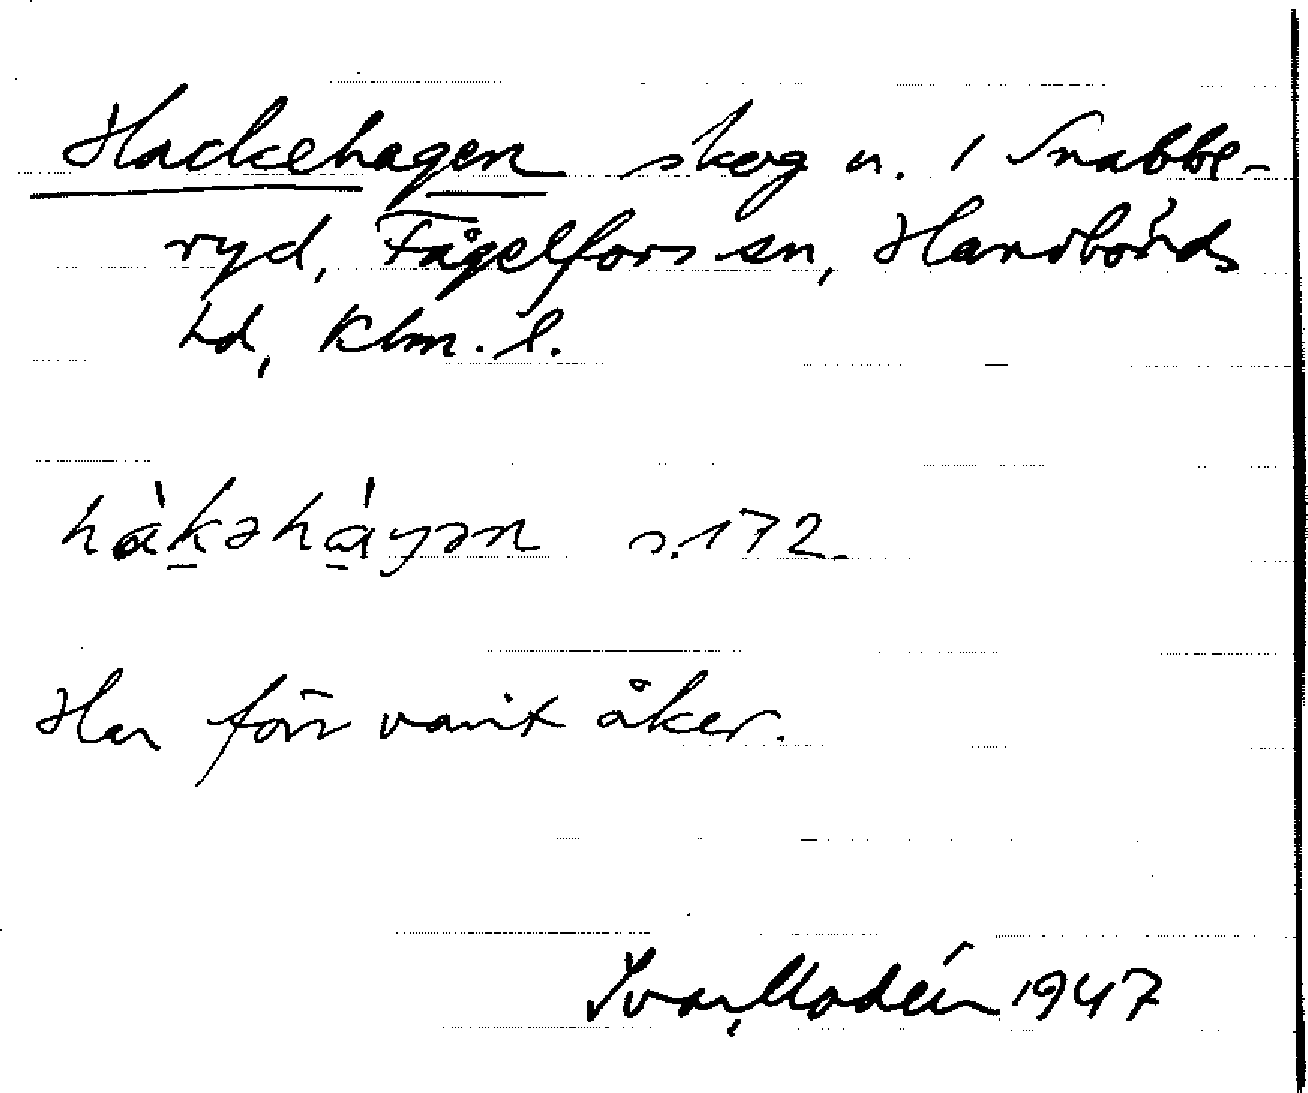 Hackehagen skog n. 1 Snabbe-
ryd, Fågelfors sn, Handbörds
hd, Klm. l.
hàkəháγən s.172.
Har förr varit åker.
Ivar Modéer 1947